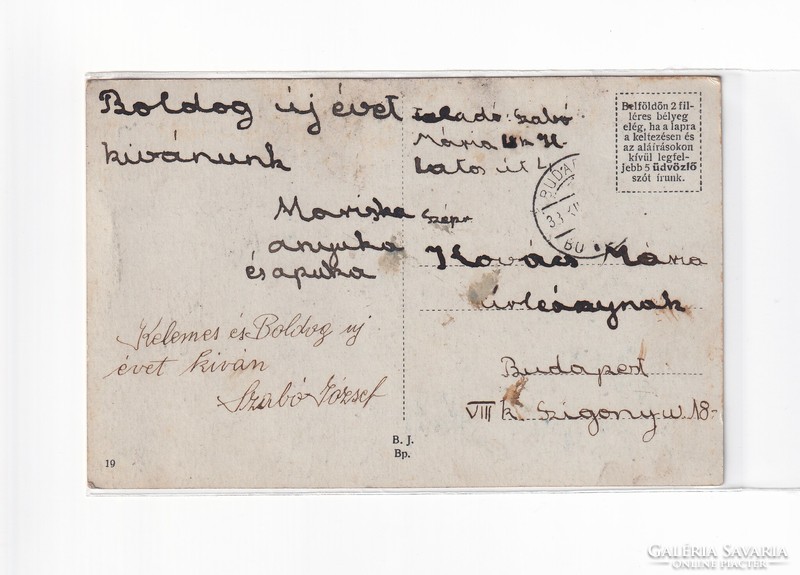 Boldog új évet
kivánunk
Mariska
anyuka
és apuka
Kelemes és Boldog uj
évet kiván
Szabó József
19
B. J.
Bp.
Feladó: Szabó
Mária
Latos út
Belföldön 2 fil-
léres bélyeg
elég, ha a lapra
a keltezésen és
az aláírásokon
kívül legfel-
jebb 5 üdvözlő
szót írunk.
BUDAP
BU
Kovács Mária
úrleánynak
Budapest
VIII k. Szigony u 18-
GALÉRIA SAVARIA
ONLINE PIACTÉR